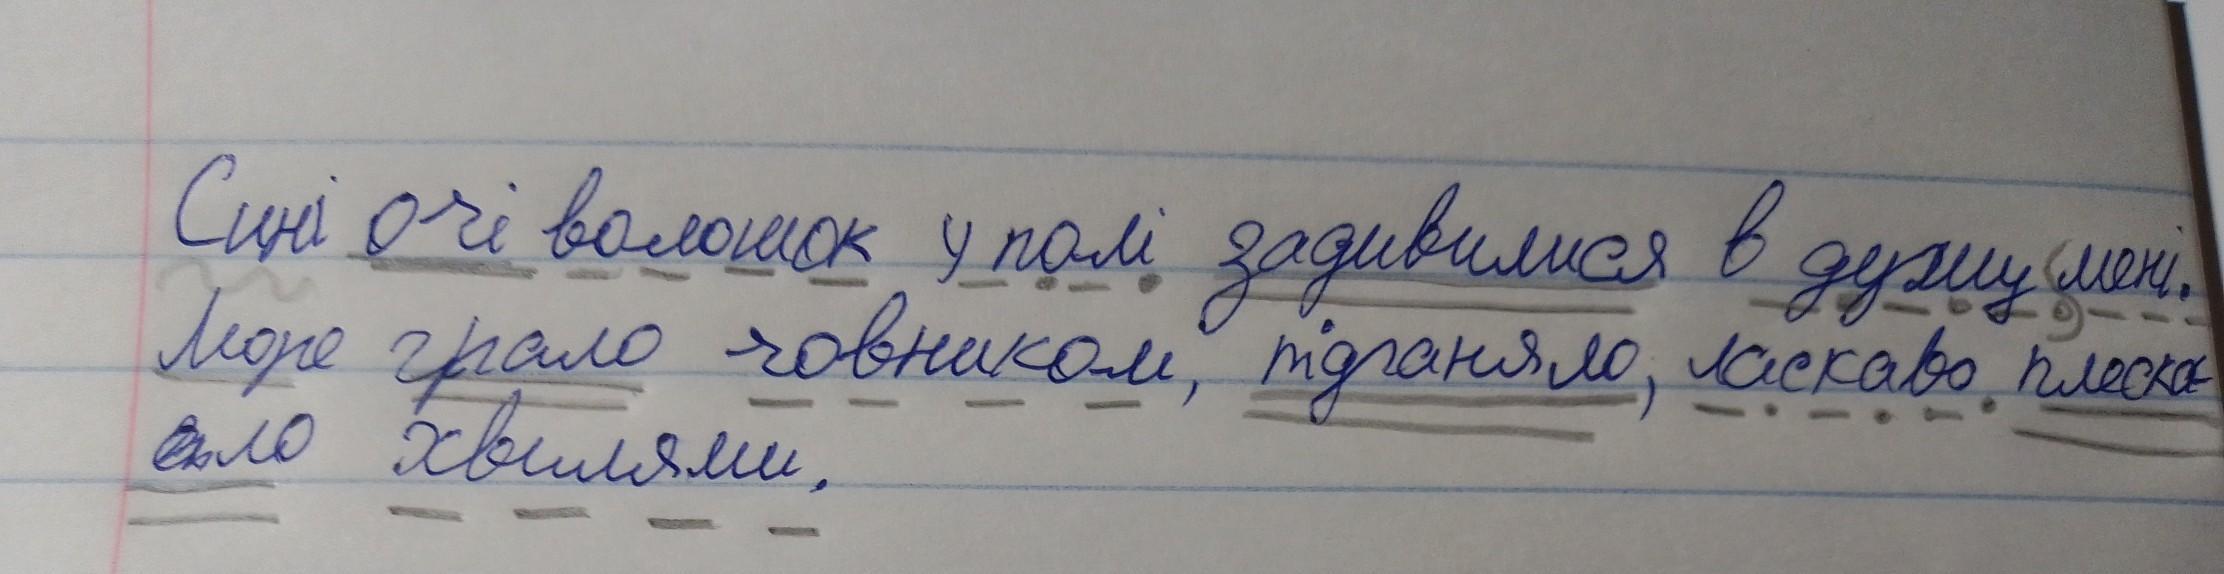 Сині очі волошок у полі задивилися в душу мені.
Море грало човником, підганяло, ласкаво плеска-
ло хвилями.